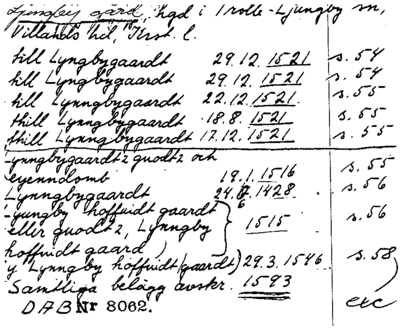 Ljungby gård, hgd i Trolle-Ljungby sn,
Villands hd, Krist. l.
till Lyngbygaardt 29.12.1521 s. 54
till Lyngbygaardt 29.12.1521 s. 54
till Lynngbygaardt 22.12.1521 s. 55
thill Lyngbygaardt 18.8.1521 s. 55
thill Lynngbygaardt 17.12.1521 s. 55
Lynngbygaardtz guodtz och
eyenndomb 19.1.1516 s. 55
Lynngbygaardt 24.6.1428 s. 56
Lyungby hoffuidt gaardt
eller guodtz, Lynngby 1515 s. 56
hoffuidt gaard
y Lynngby hoffuidt (gaardt) 29.3.1546 s. 58
Samtliga belägg avskr. 1593
DAB Nr 8062. exc